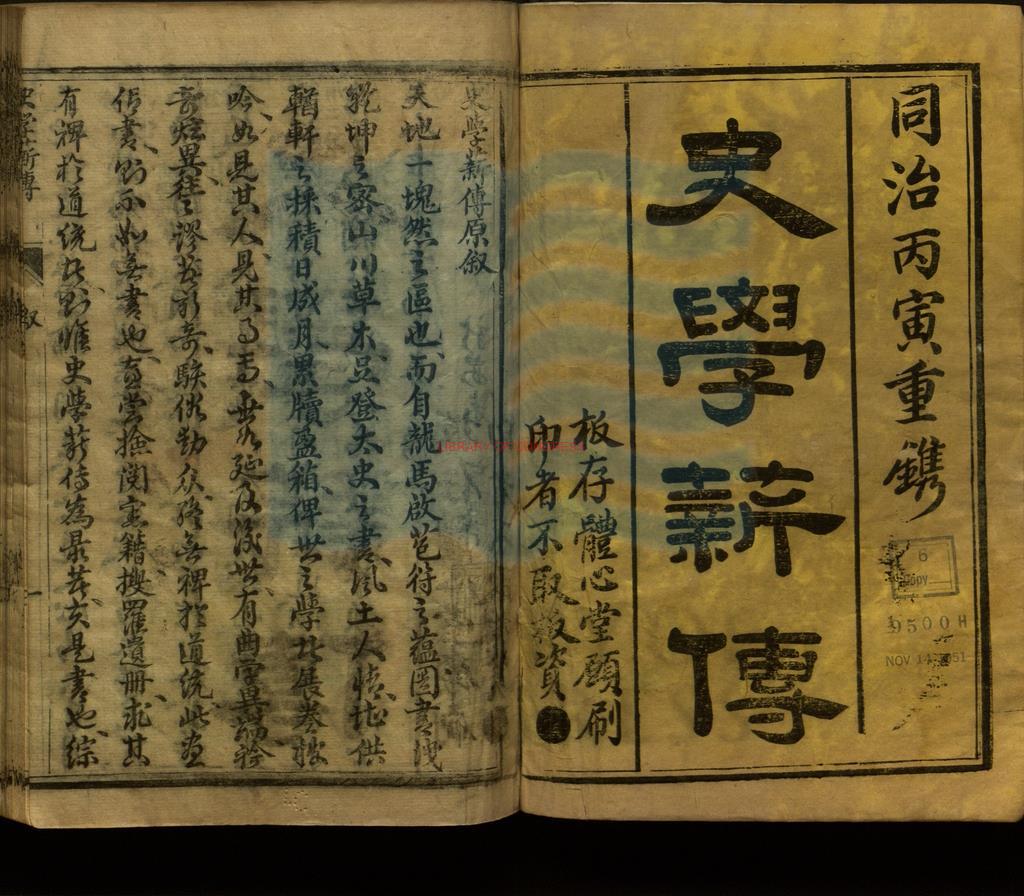 同治丙寅重鐫
史學薪傳
板存體心堂願刷
印者不取板資
6
Copy
9500 H
NOV 14 1951
LIBRARY OF CONGRESS
史學薪傳原叙
天地一塊然之區也而自龍馬啟苞符之蘊圖書洩
乾坤之密山川草木足登太史之書風土人情堪供
輶軒之採積日成月累牘盈箱俾世之學者展卷披
吟如見其人見其事焉無如延及後世有曲學異端矜
奇炫異往往謬為新奇駭俗動衆終無裨於道統此盡
信書則不如無書也嘗撿閱室籍搜羅遺冊求其
有裨於道統者則惟史學薪傳為最茂矣是書也綜
史學薪傳
叙
一